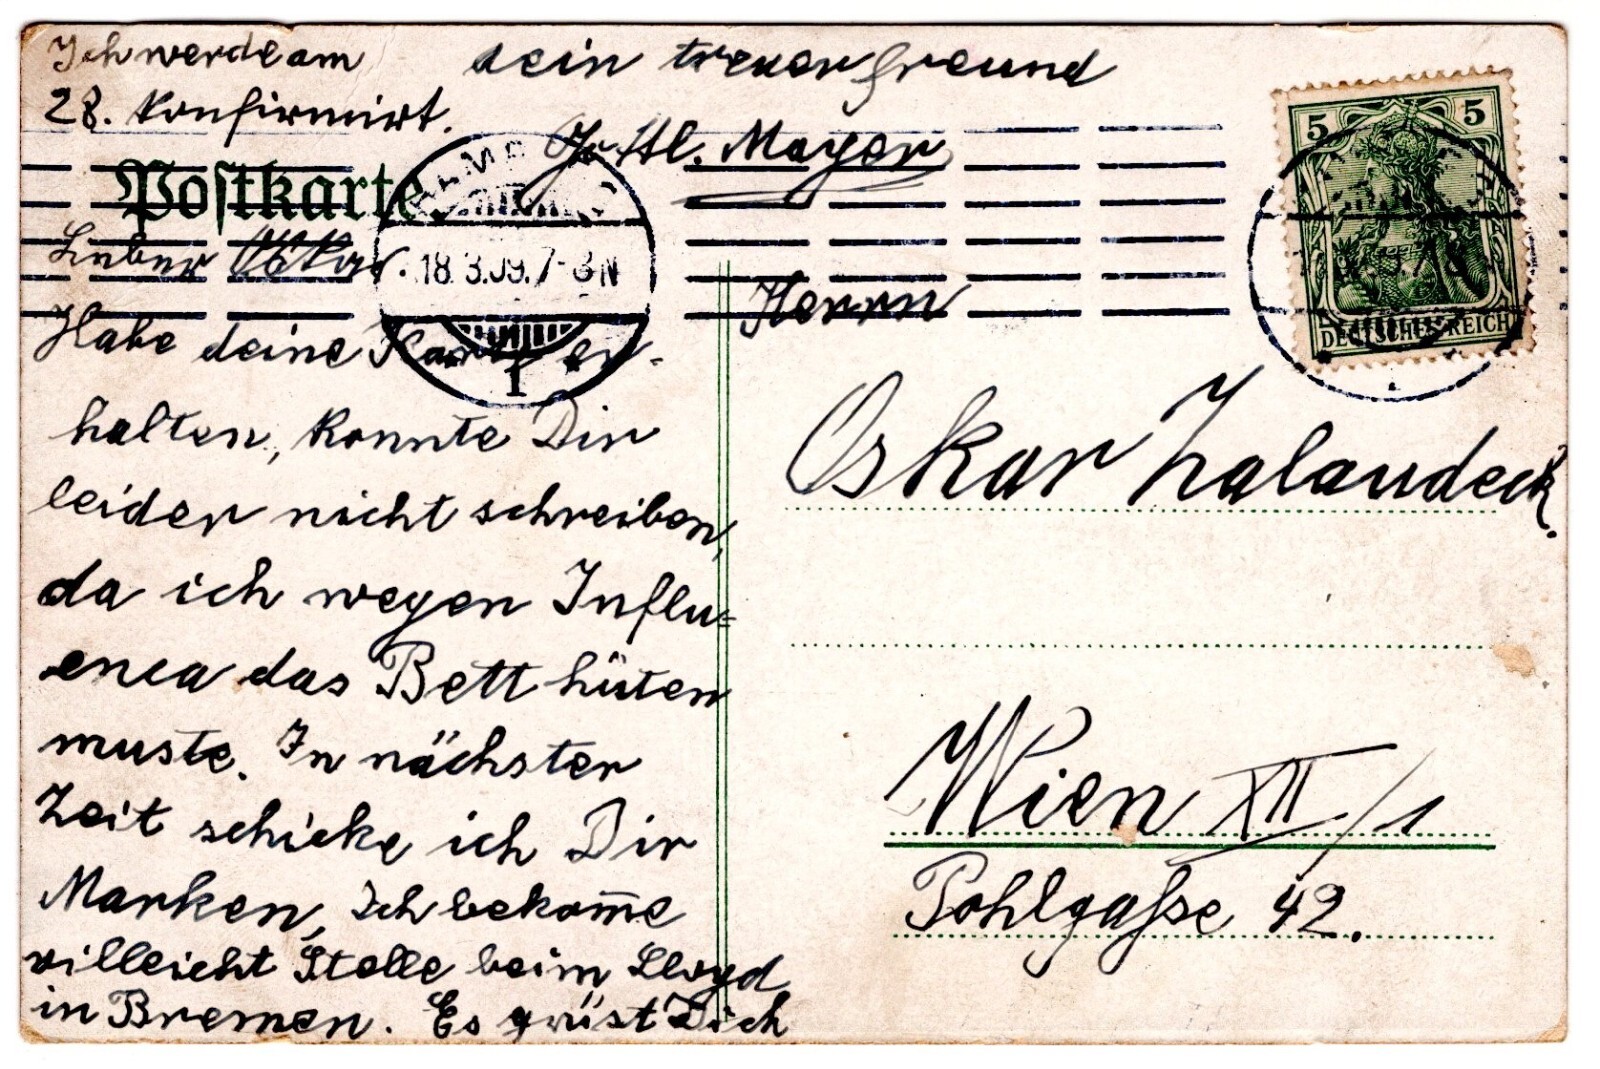 Ich werde am
28. Konfirmirt.
dein treuer freund
Mayer
Postkarte
Lieber Oskar.
18.3.09.7-8N
1
Habe deine Karte er-
halten, konnte Dir
leider nicht schreiben,
da ich wegen Influ=
enca das Bett hüten
muste. In nächster
Zeit schicke ich Dir
Marken, Ich bekom̅e
villeicht Stelle beim Lloyd
in Bremen. Es grüst Dich
5 5
DEUTSCHES REICH
Herrn
Oskar Zalaudeck.
Wien XII/1
Pohlgaſse 42.